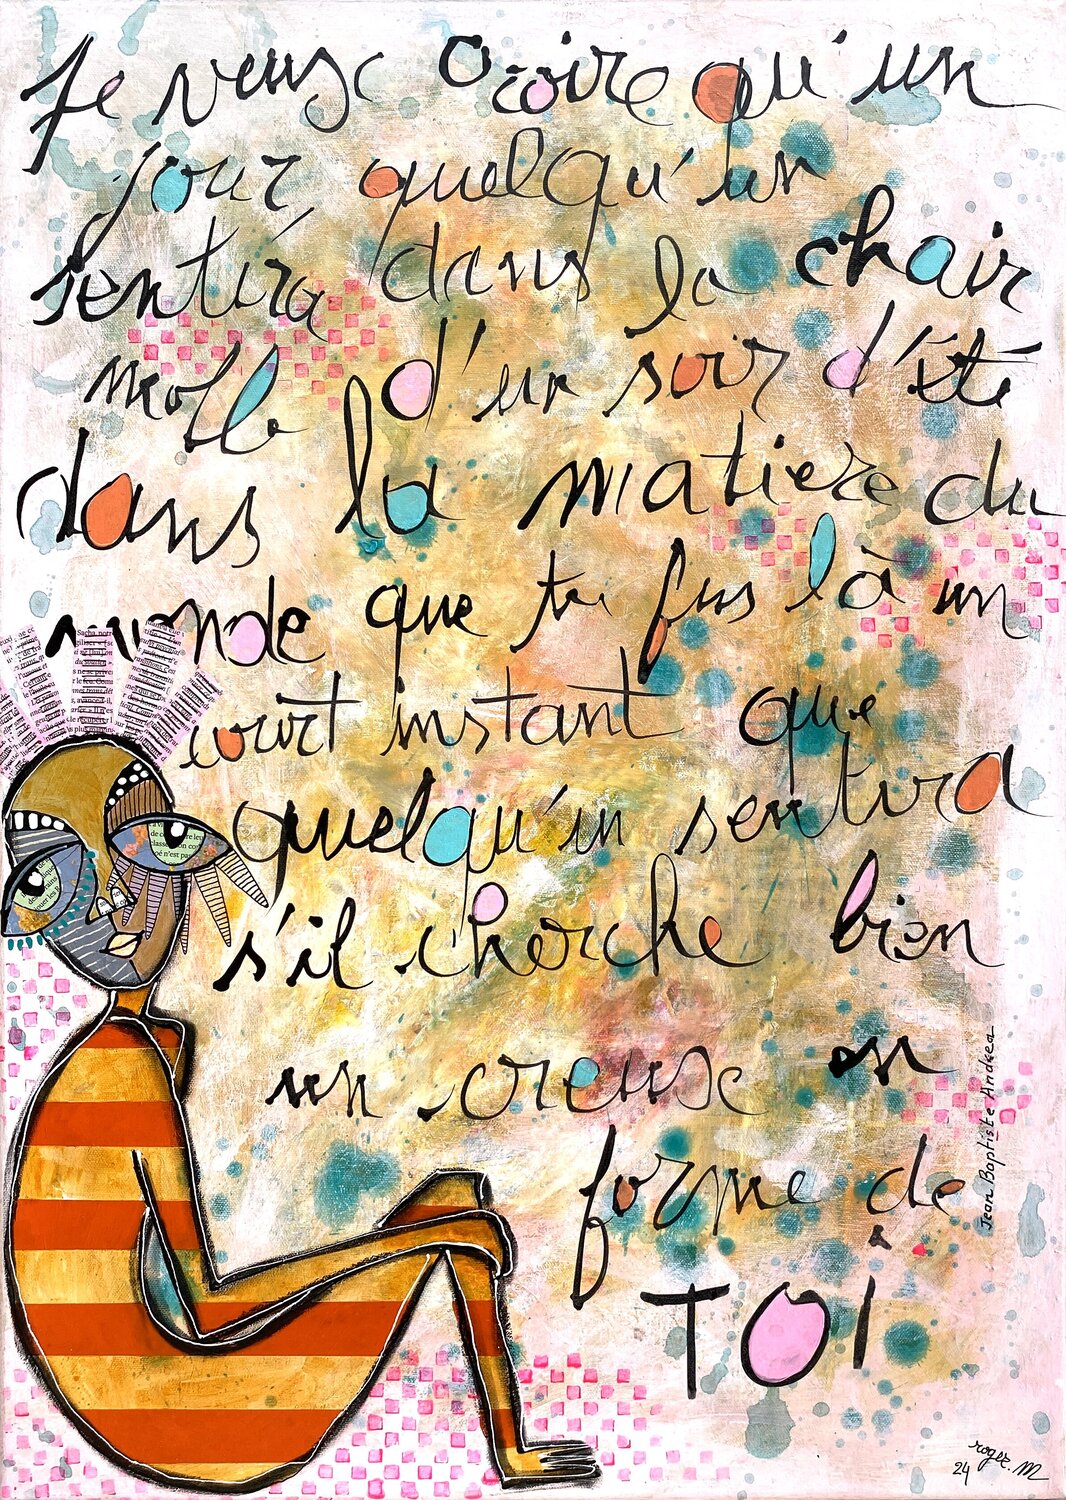 Je veux croire qu'un
jour quelqu'un
sentira dans la chair
molle d'un soir d'été
dans la matière du
monde que tu fus là un
court instant que
quelqu'un sentira
s'il cherche bien
un creux en
forme de
TOi
Jean Baptiste Andrea
roger. M
24